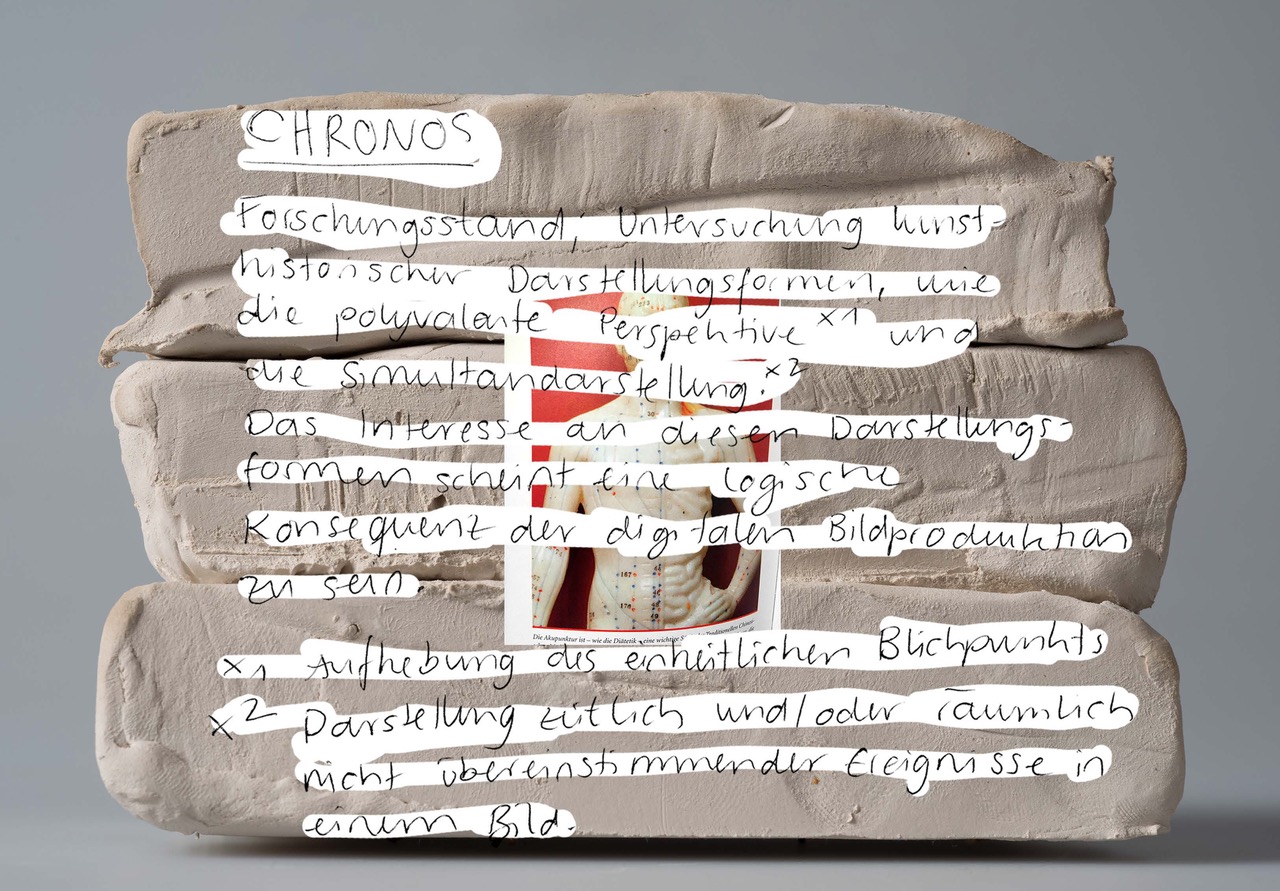 CHRONOS
Forschungsstand, Untersuchung kunst-
historischer Darstellungsformen, wie
die polyvalente Perspektive x1 und
die Simultandarstellung.x2
Das Interesse an diesen Darstellungs-
formen scheint eine logische
Konsequenz der digitalen Bildproduktion
zu sein.
Die Akupunktur ist – wie die Diätetik – eine wichtige
x1 Aufhebung des einheitlichen Blickpunkts
x2 Darstellung zeitlich und/oder räumlich
nicht übereinstimmender Ereignisse in
einem Bild.